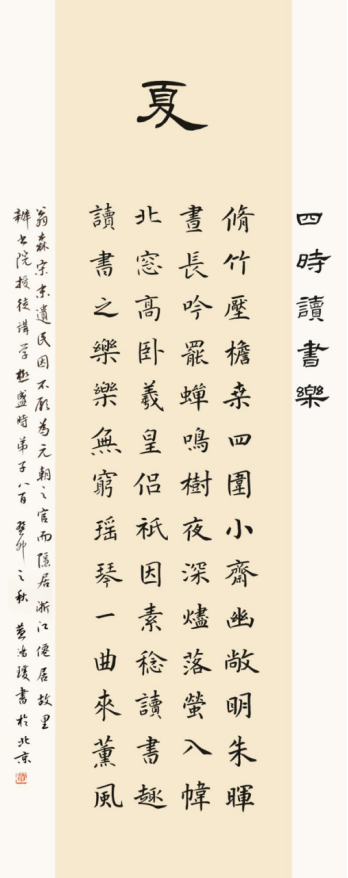 四時讀書樂
夏
脩竹壓檐桒四圍小齋幽敞明朱暉
晝長吟罷蟬鳴樹夜深燼落螢入幃
北窓高卧羲皇侣祇因素稔讀書趣
讀書之樂樂無窮瑶琴一曲來薰風
翁森宗末遺民因不願為元朝之官而隱居浙江僊居故里
辦書院授徒講學極盛時弟子八百 癸卯之秋 黄浩瓊書於北京